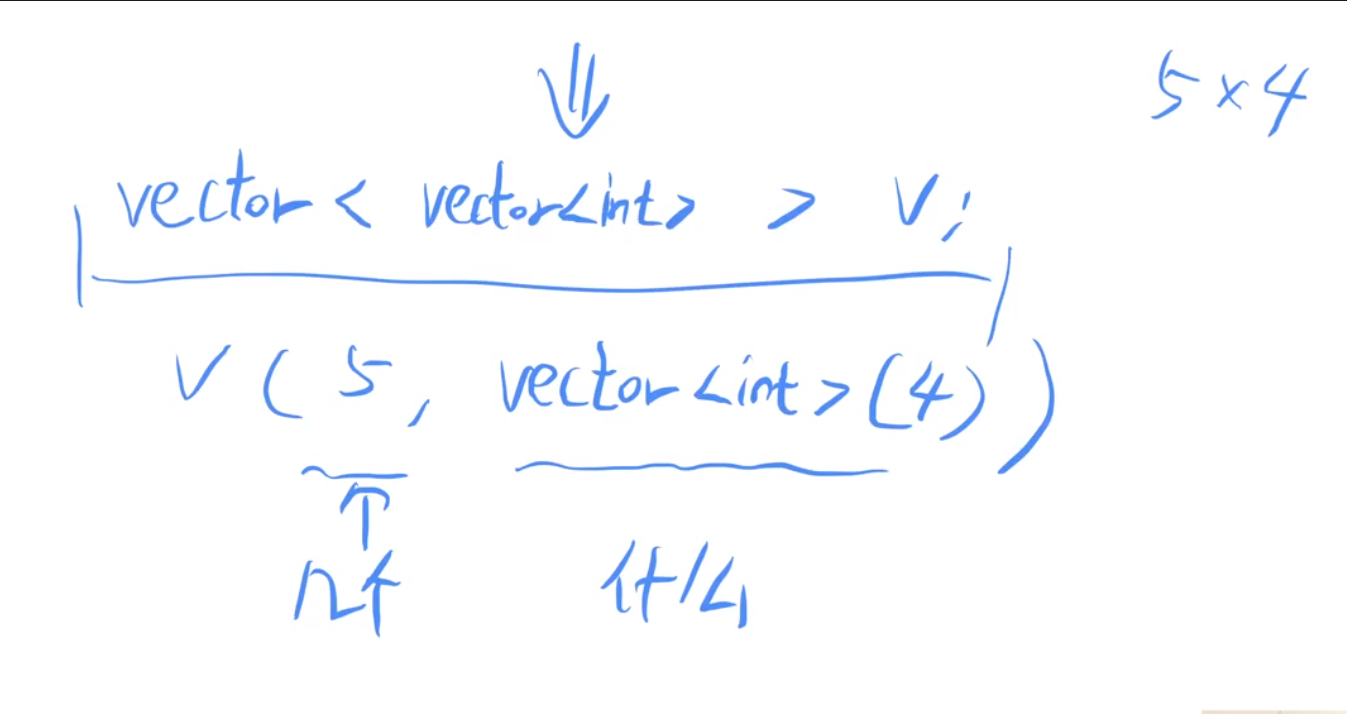 5×4
vector< vector<int> > v;
v ( 5, vector<int>(4) )
几个 什么